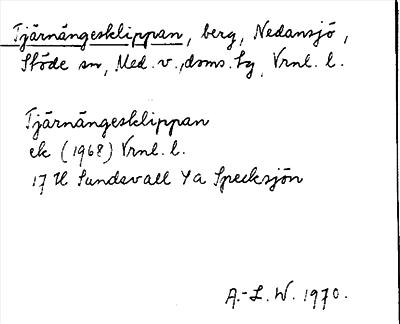 Tjärnängesklippan, berg, Nedansjö,
Stöde sn, Med. v., doms. tg, Vrnl. l.
Tjärnängesklippan
ek (1968) Vrnl. l.
17 H Sundsvall Ya Specksjön
A.-L. W. 1970.